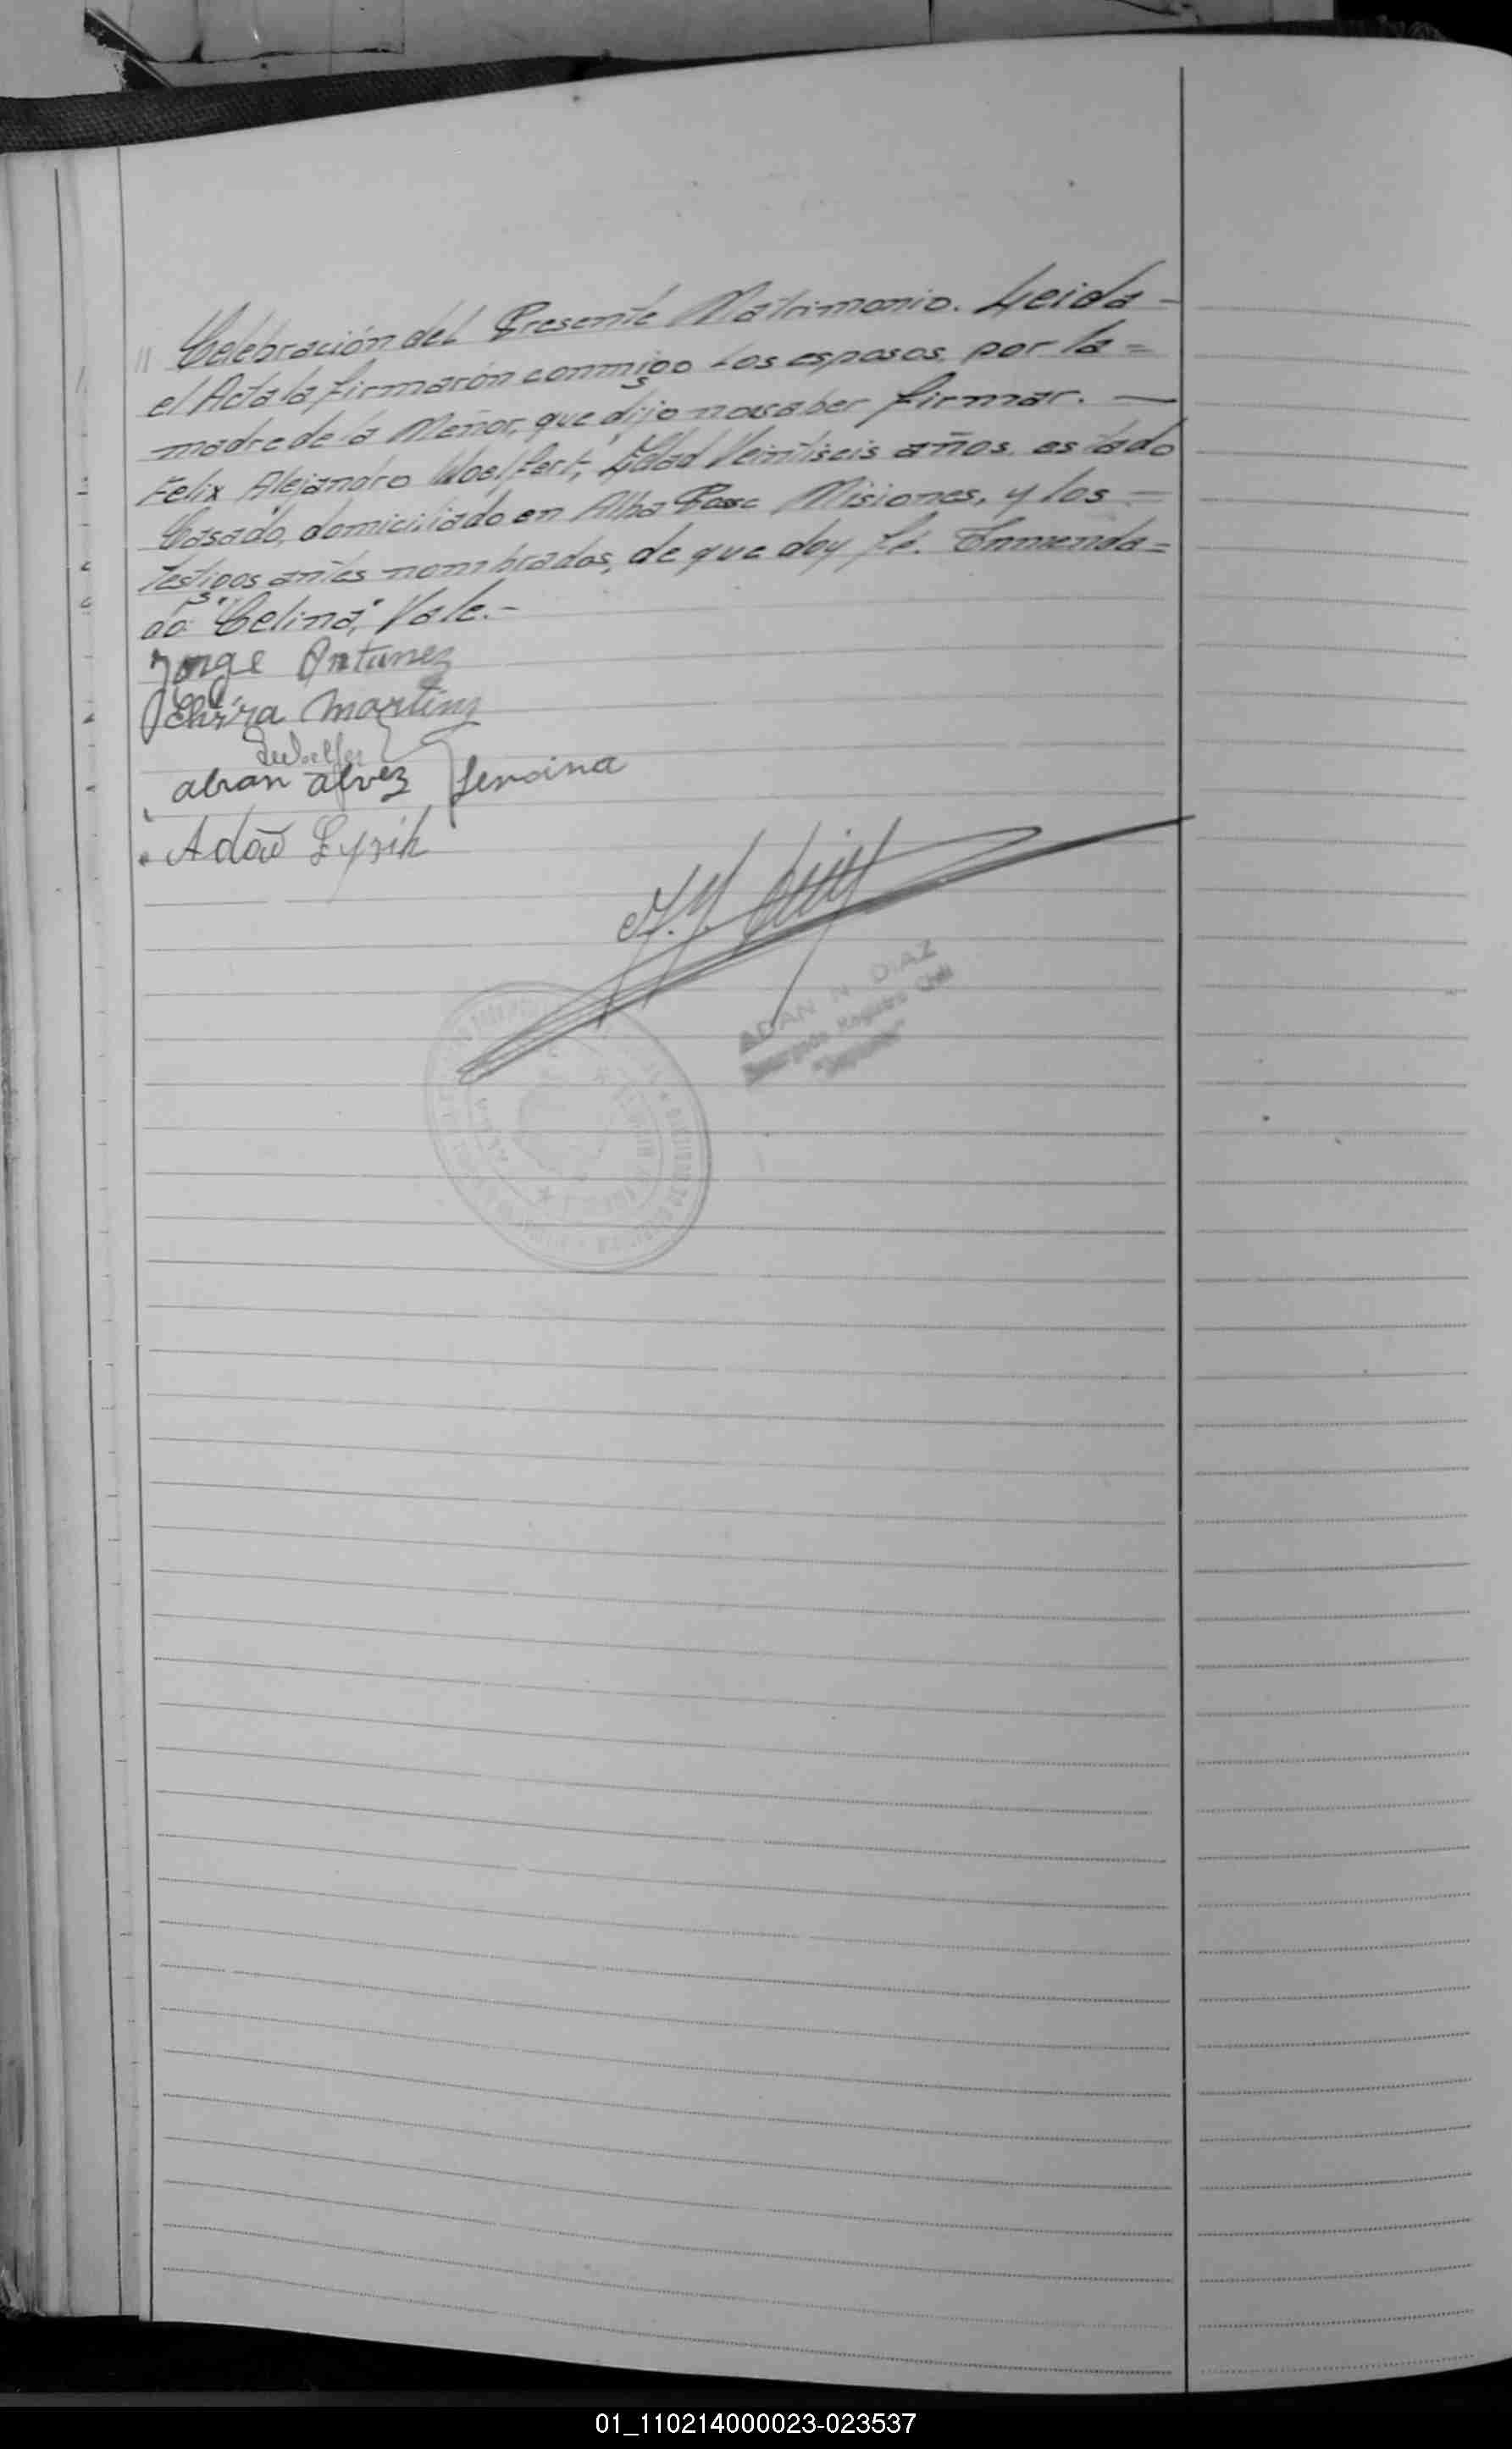 " Celebración del Presente Matrimonio. Leida -
el Acta la firmarón conmigo Los esposos, por la =
madre de la Menor, que dijo no saber firmar. —
Felix Alejandro Woelfert, Edad Veintiseis años, estado
Casado, domiciliado en Alba Posse Misiones, y los =
Testigos antes nombrados, de que doy fé. Enmenda=
do: "Celina", Vale.-
Jorge Antunez
Martinz
abran alvez
Adão
ADAN N DIAZ
Registro Civil
01_110214000023-023537